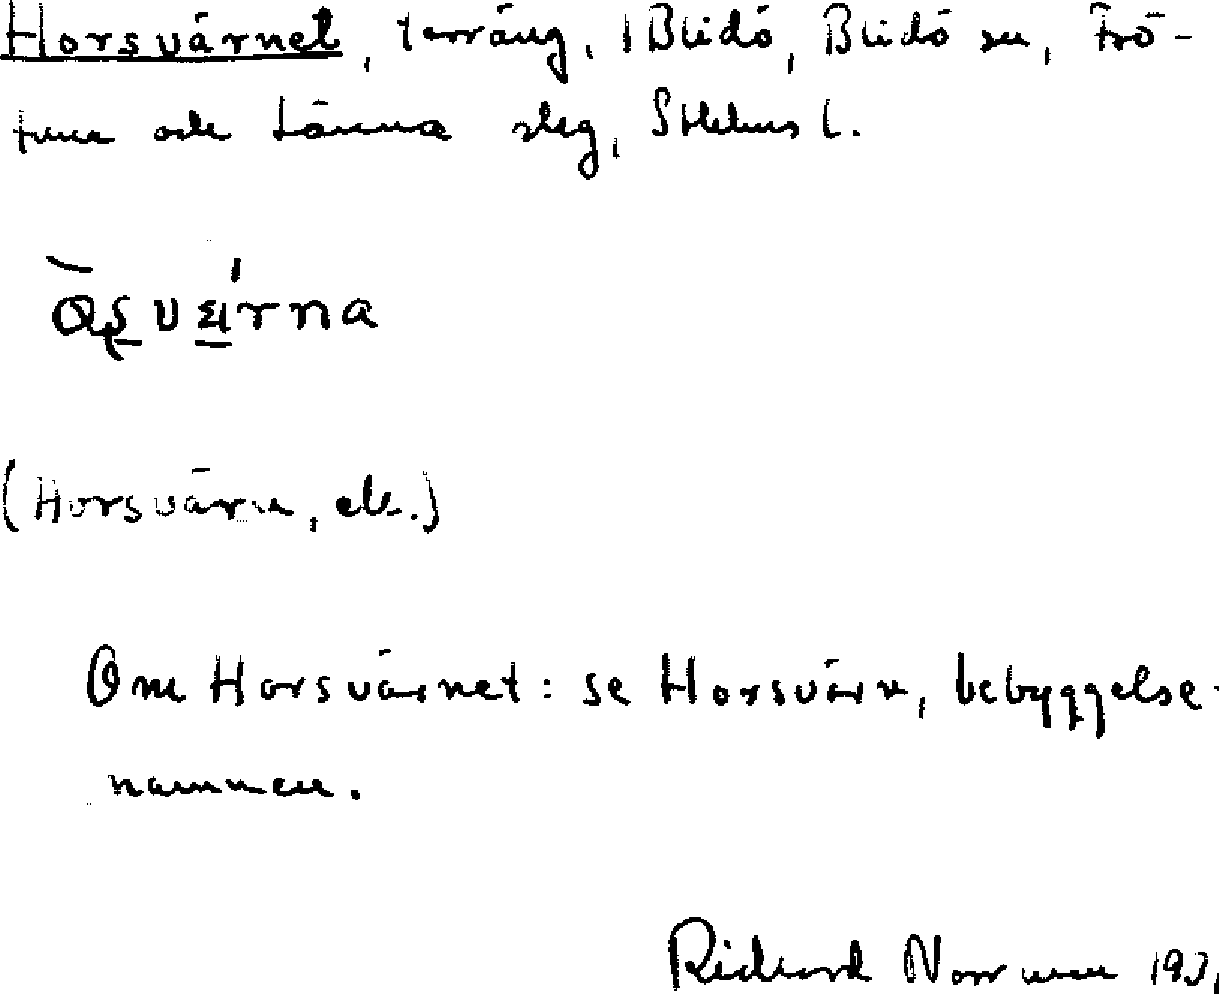 Horsvärnet, terräng, i Blidö, Blidö sn, Frö-
tuna och Länna skg, Sthlms l.
(Horsvärn, etc.)
Om Horsvärnet: se Horsvärn, bebyggelse-
namnen.
Richard Norrman